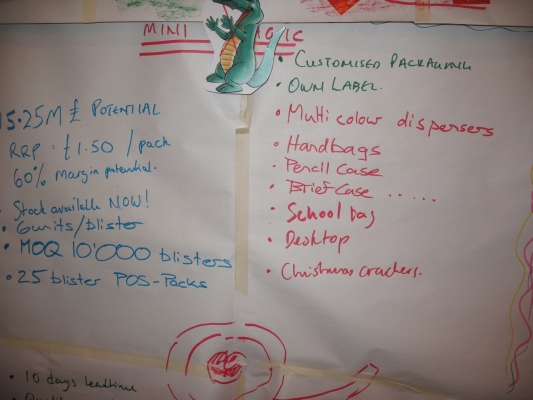 MINI
15.25M £ POTENTIAL
RRP : £1.50 / pack
60% Margin potential.
• Stock available NOW!
• 6 units/blister
• MOQ 10'000 blisters
• 25 blister POS-Packs
• 10 days leadtime
• CUSTOMISED PACKAGING
• OWN LABEL.
• Multi colour dispensers
• Handbags
• Pencil Case
• Brief Case .....
• School bag
• Desktop
• Christmas crackers.